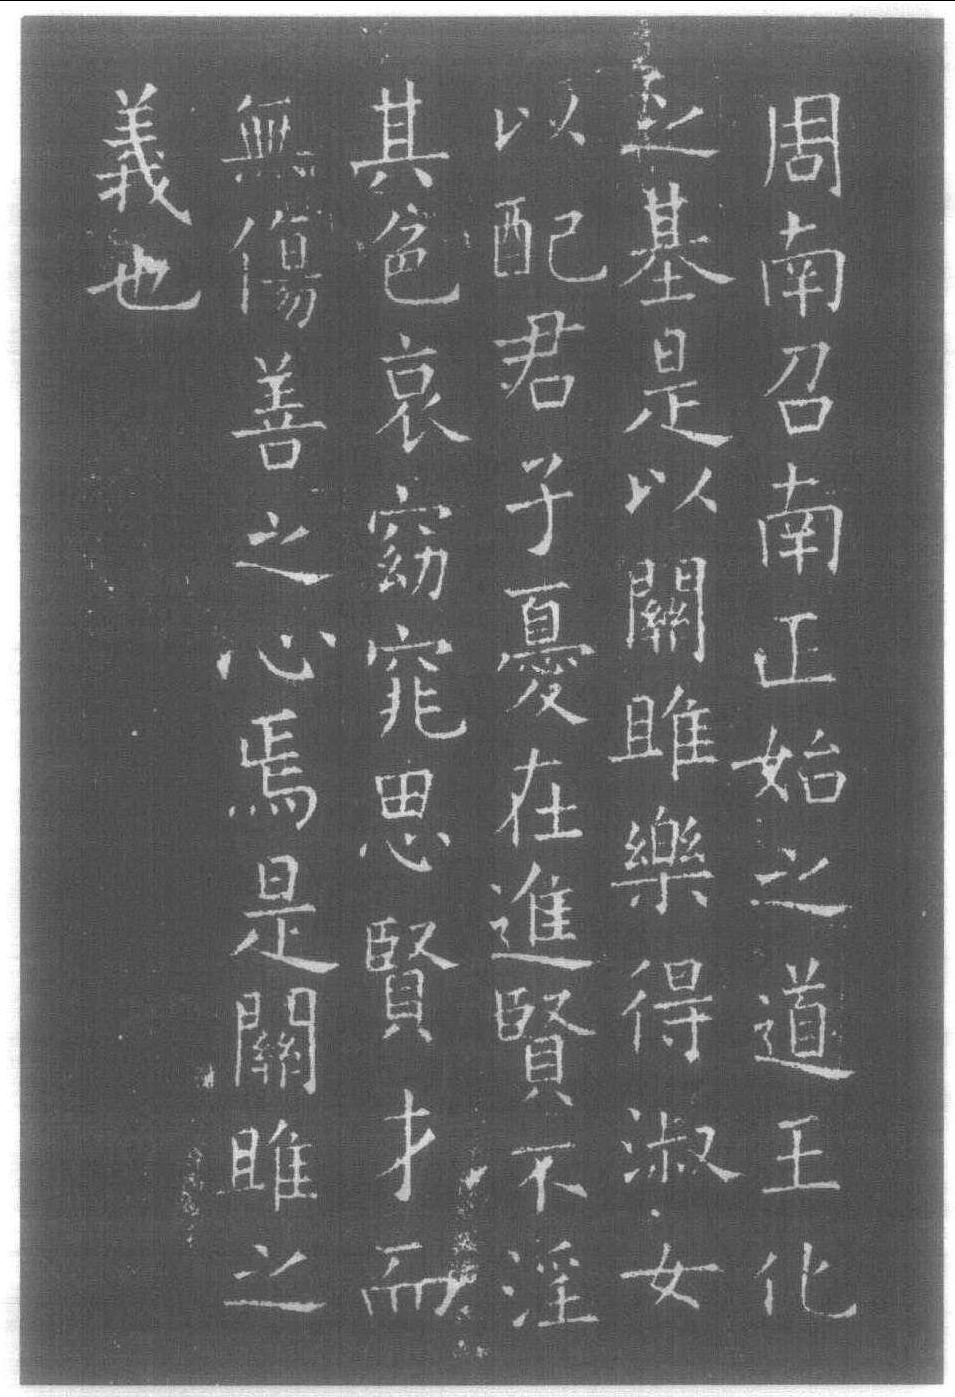 周南召南正始之道王化
之基是以關雎樂得淑女
以配君子憂在進賢不淫
其色哀窈窕思賢才而
無傷善之心焉是關雎之
義也